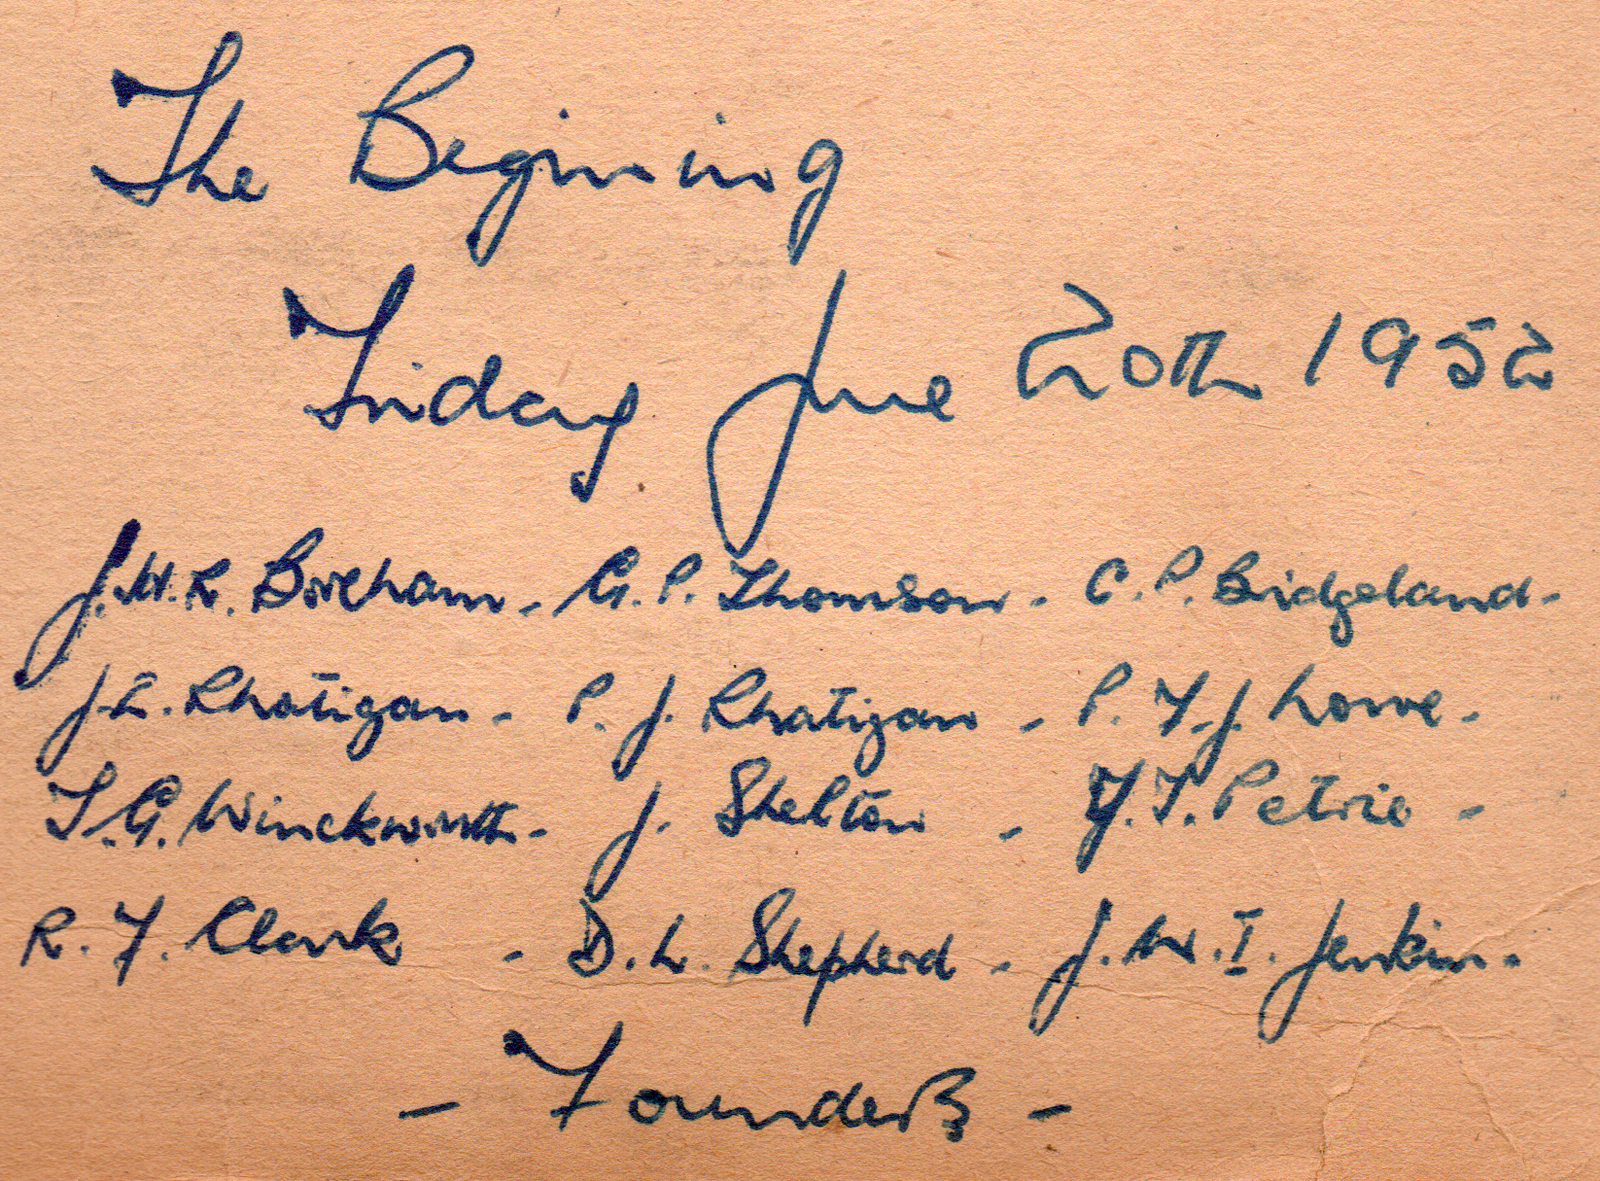 The Begining
Friday June 20th 1952
J.W.R. Boreham - G.P. Thomson - C.P. Bridgeland -
J.L. Rhatigan - P. J. Rhatigan - P. F. J. Lowe -
S.G. Winckworth - J. Shelton - F.T. Petrie -
R. F. Clark - D.L. Shepherd - J.W.I. Jenkin -
- Founders -